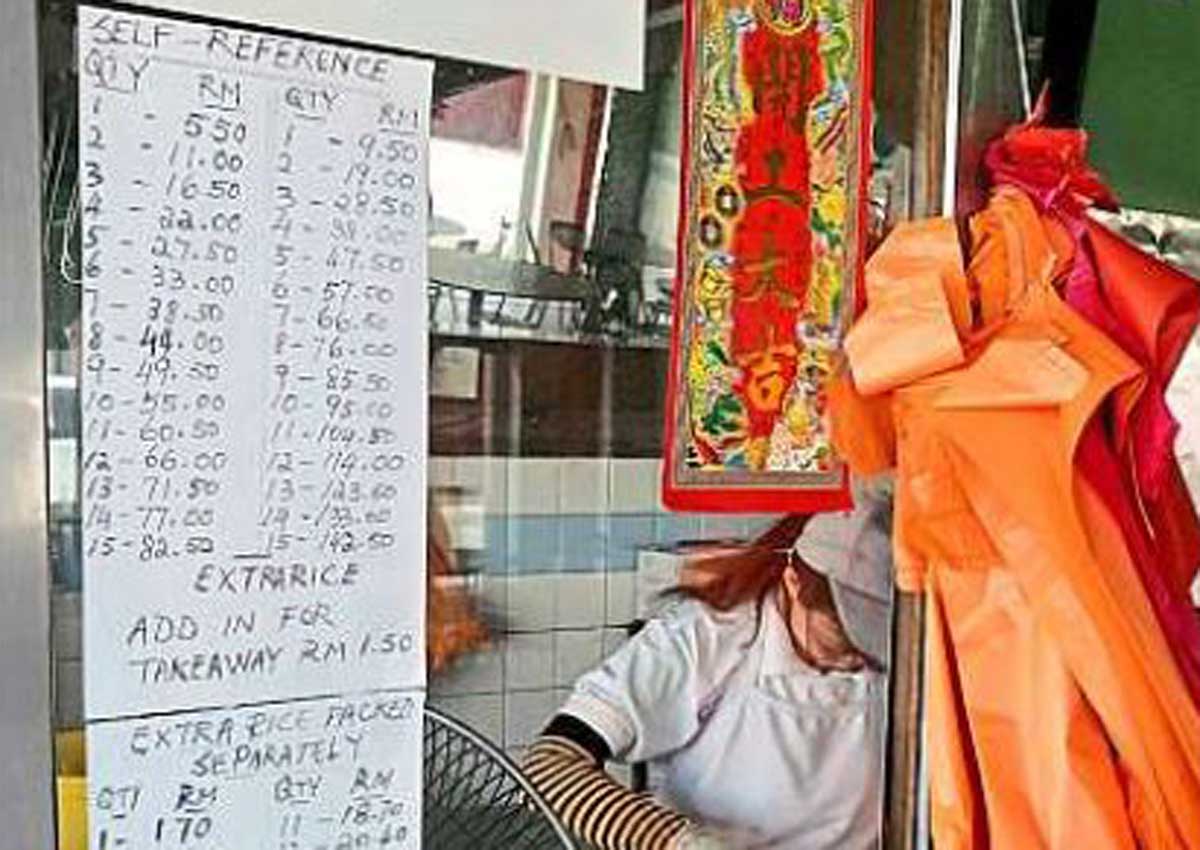 SELF-REFERENCE
QTY RM QTY RM
1 - 5.50 1 - 9.50
2 - 11.00 2 - 19.00
3 - 16.50 3 - 28.50
4 - 22.00 4 - 38.00
5 - 27.50 5 - 47.50
6 - 33.00 6 - 57.00
7 - 38.50 7 - 66.50
8 - 44.00 8 - 76.00
9 - 49.50 9 - 85.50
10 - 55.00 10 - 95.00
11 - 60.50 11 - 104.50
12 - 66.00 12 - 114.00
13 - 71.50 13 - 123.50
14 - 77.00 14 - 133.00
15 - 82.50 15 - 142.50
EXTRA RICE
ADD IN FOR
TAKEAWAY RM 1.50
EXTRA RICE PACKED
SEPARATELY
QTY RM QTY RM
1 - 1.70 11 - 18.70
吉